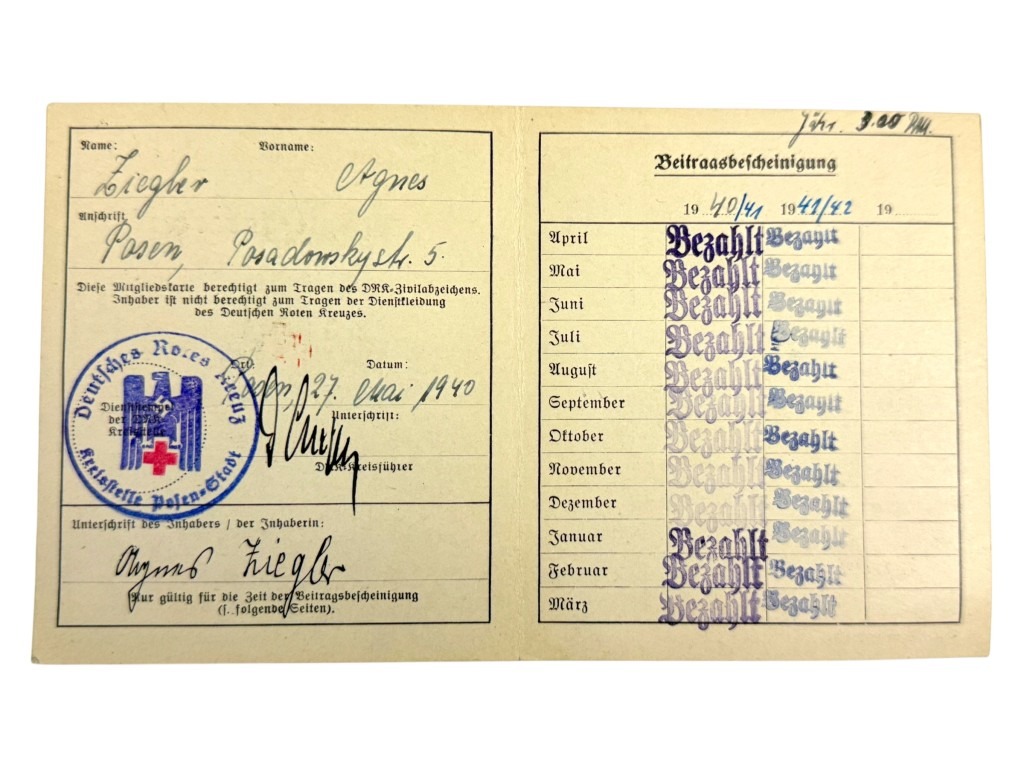 Name: Vorname:
Ziegler Agnes
Anschrift
Posen, Posadowskystr. 5.
Diese Mitgliedskarte berechtigt zum Tragen des DRK-Zivilabzeichens.
Inhaber ist nicht berechtigt zum Tragen der Dienstkleidung
des Deutschen Roten Kreuzes.
Ort: Datum:
Posen, 27. Mai 1940
Unterschrift:
DRK-Kreisführer
Deutsches Rotes Kreuz
Kreisstelle Posen-Stadt
Dienststempel
der DRK-
Kreisstelle
Unterschrift des Inhabers / der Inhaberin:
Agnes Ziegler
Nur gültig für die Zeit der Beitragsbescheinigung
(s. folgende Seiten).
Jähr. 3.00 RM.
Beitragsbescheinigung
19 40/41 19 41/42 19
April Bezahlt Bezahlt
Mai Bezahlt Bezahlt
Juni Bezahlt Bezahlt
Juli Bezahlt Bezahlt
August Bezahlt Bezahlt
September Bezahlt Bezahlt
Oktober Bezahlt Bezahlt
November Bezahlt Bezahlt
Dezember Bezahlt Bezahlt
Januar Bezahlt Bezahlt
Februar Bezahlt Bezahlt
März Bezahlt Bezahlt